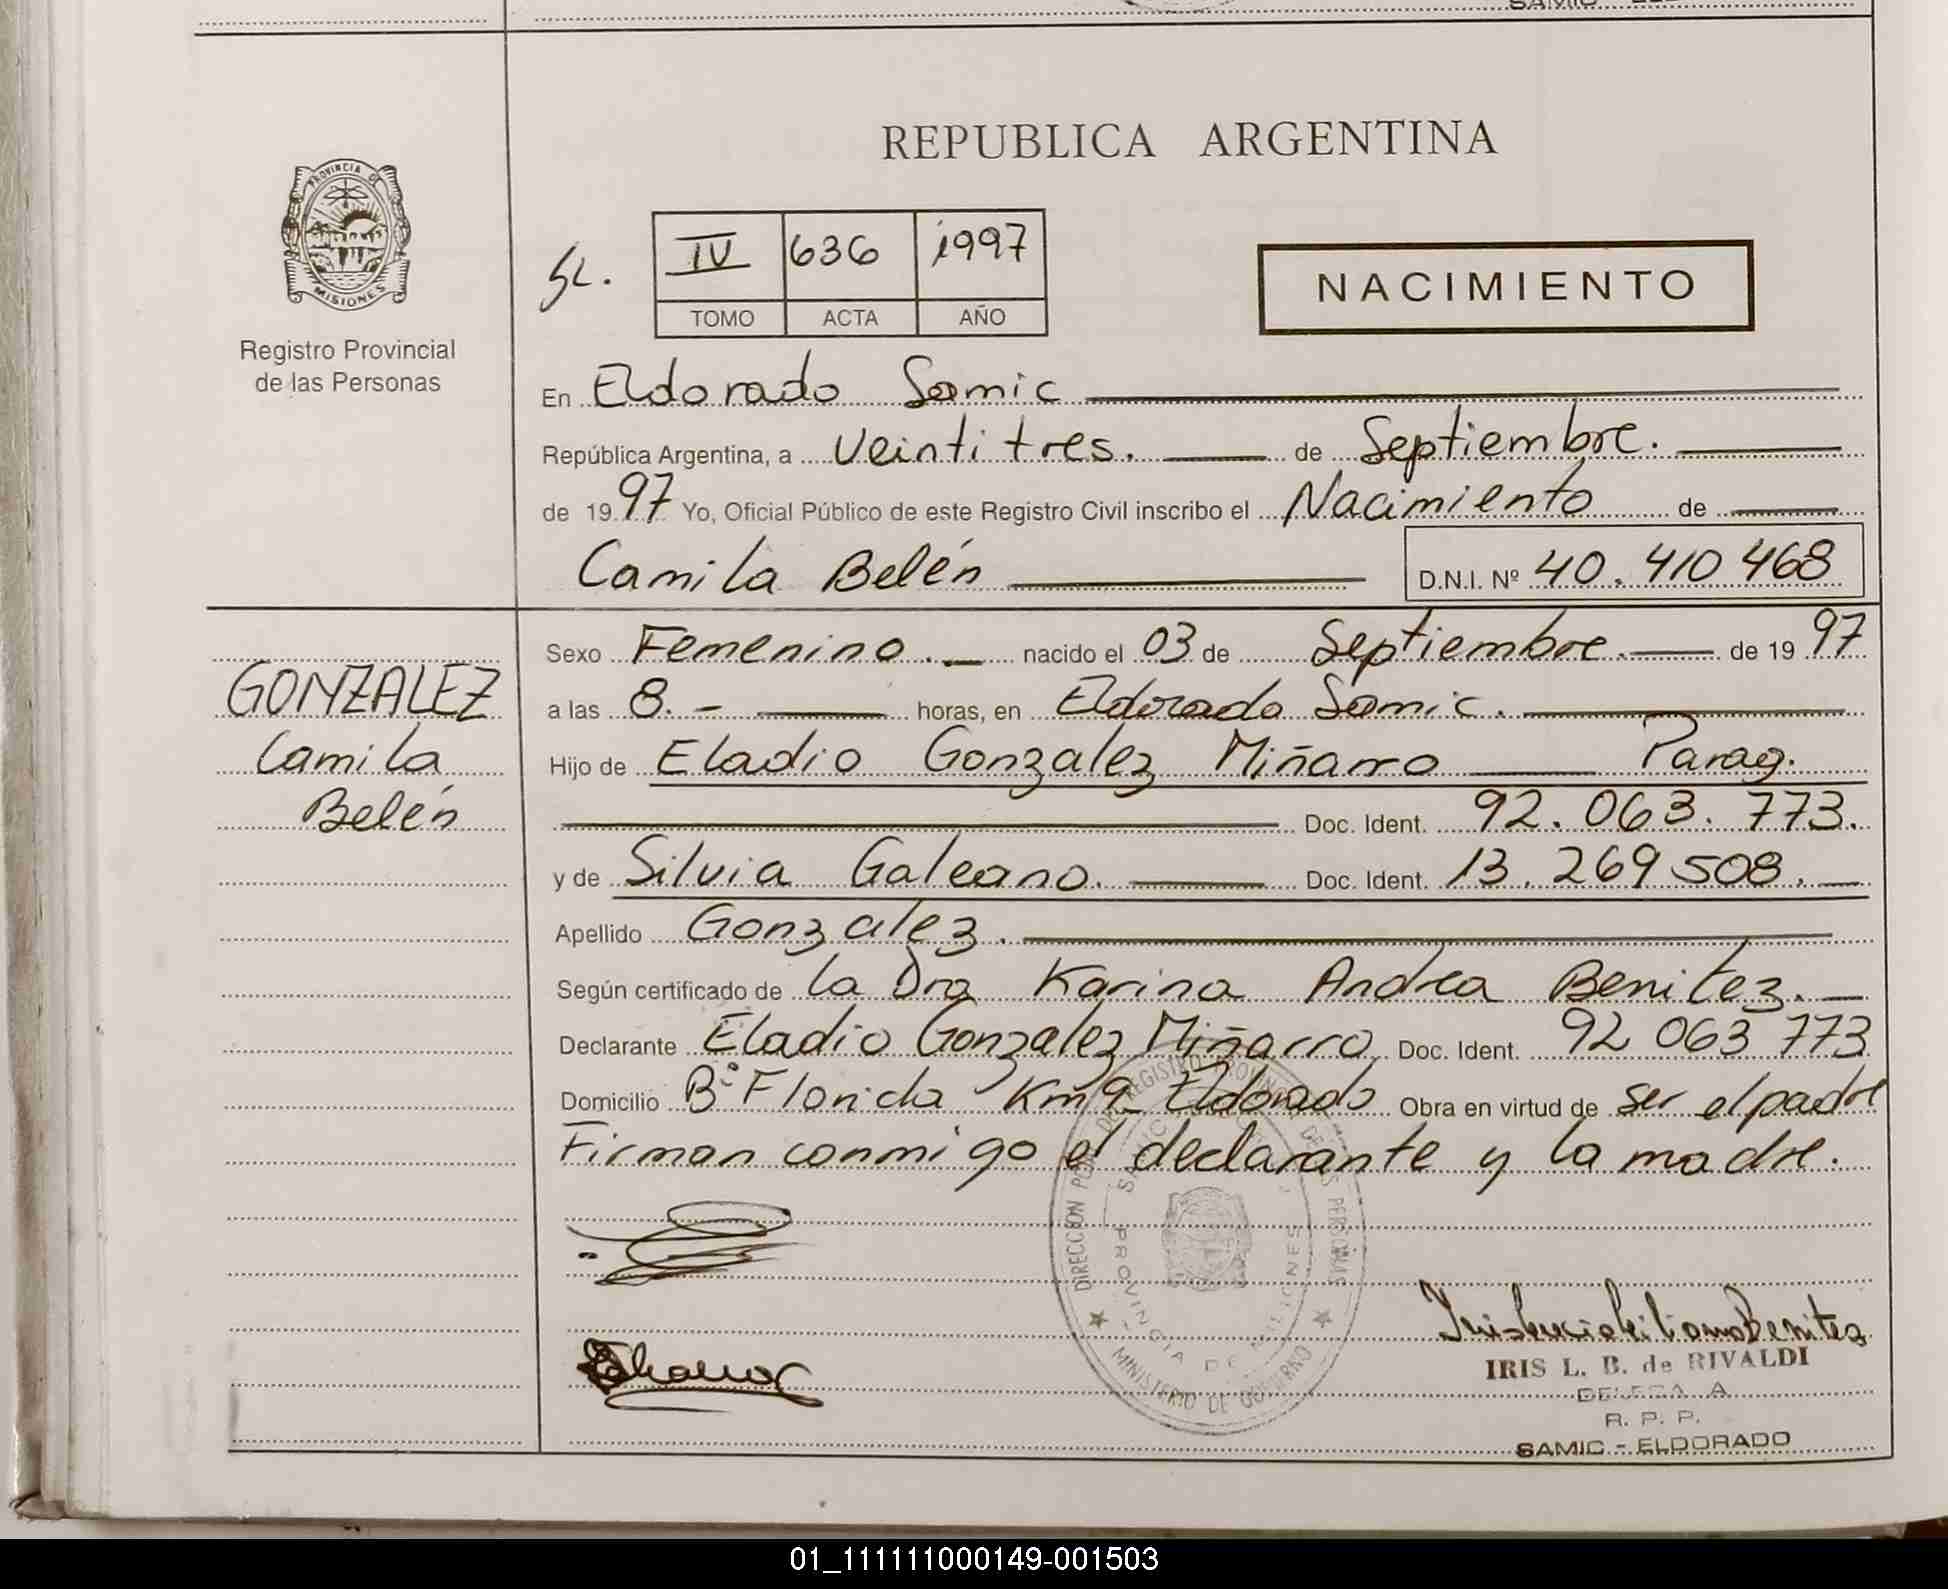 SAMIC
REPUBLICA ARGENTINA
PROVINCIA DE
MISIONES
Registro Provincial
de las Personas
SL.
IV 636 1997
TOMO ACTA AÑO
NACIMIENTO
En Eldorado Samic
República Argentina, a Veintitres. de Septiembre.
de 1997 Yo, Oficial Público de este Registro Civil inscribo el Nacimiento de
Camila Belén D.N.I. Nº 40.410468
GONZALEZ
Camila
Belén
Sexo Femenino. nacido el 03 de Septiembre. de 1997
a las 8.- horas, en Eldorado Samic.
Hijo de Eladio Gonzalez Miñarro Parag.
Doc. Ident. 92.063.773.
y de Silvia Galeano. Doc. Ident. 13.269508.
Apellido Gonzalez.
Según certificado de la Dra Karina Andrea Benitez.
Declarante Eladio Gonzalez Miñarro, Doc. Ident. 92 063 773
Domicilio Bº Florida Km 9 Eldorado Obra en virtud de ser el padre
Firman conmigo el declarante y la madre.
PROVINCIA DE MISIONES
MINISTERIO DE GOBIERNO
IRIS L. B. de RIVALDI
DELEGADA
R. P. P.
SAMIC - ELDORADO
01_111111000149-001503